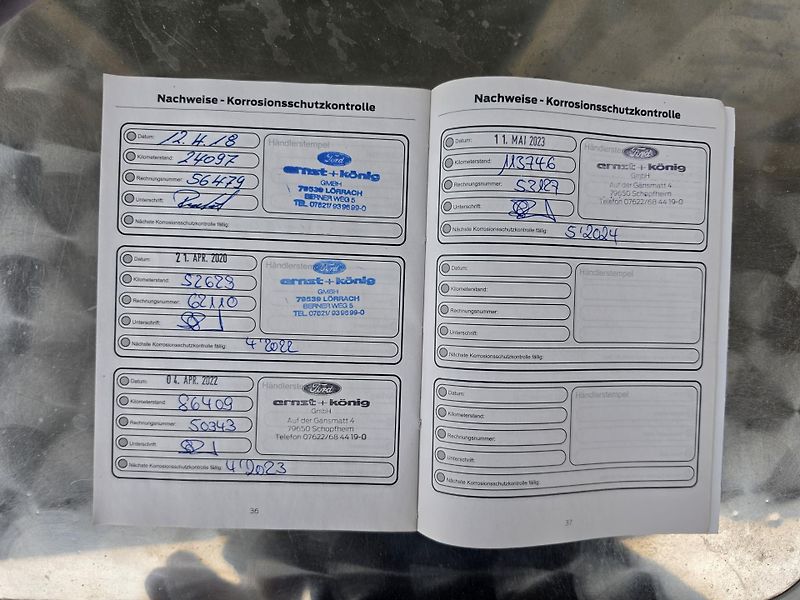 Nachweise - Korrosionsschutzkontrolle
Datum: 12.4.18
Kilometerstand: 24097
Rechnungsnummer: 56479
Unterschrift:
Nächste Korrosionsschutzkontrolle fällig:
Händlerstempel
Ford
ernst + könig
GMBH
79539 LÖRRACH
BERNER WEG 5
TEL. 07621/939699-0
Datum: 21. APR. 2020
Kilometerstand: 52629
Rechnungsnummer: 62110
Unterschrift:
Nächste Korrosionsschutzkontrolle fällig: 4'2022
Händlerstempel
Ford
ernst + könig
GMBH
79539 LÖRRACH
BERNER WEG 5
TEL. 07621/939699-0
Datum: 04. APR. 2022
Kilometerstand: 86409
Rechnungsnummer: 50343
Unterschrift:
Nächste Korrosionsschutzkontrolle fällig: 4'2023
Händlerstempel
Ford
ernst + könig
GmbH
Auf der Gänsmatt 4
79650 Schopfheim
Telefon 07622/68 44 19-0
36
Nachweise - Korrosionsschutzkontrolle
Datum: 11. MAI 2023
Kilometerstand: 113746
Rechnungsnummer: 53129
Unterschrift:
Nächste Korrosionsschutzkontrolle fällig: 5'2024
Händlerstempel
Ford
ernst + könig
GmbH
Auf der Gänsmatt 4
79650 Schopfheim
Telefon 07622/68 44 19-0
Datum:
Kilometerstand:
Rechnungsnummer:
Unterschrift:
Nächste Korrosionsschutzkontrolle fällig:
Händlerstempel
Datum:
Kilometerstand:
Rechnungsnummer:
Unterschrift:
Nächste Korrosionsschutzkontrolle fällig:
Händlerstempel
37